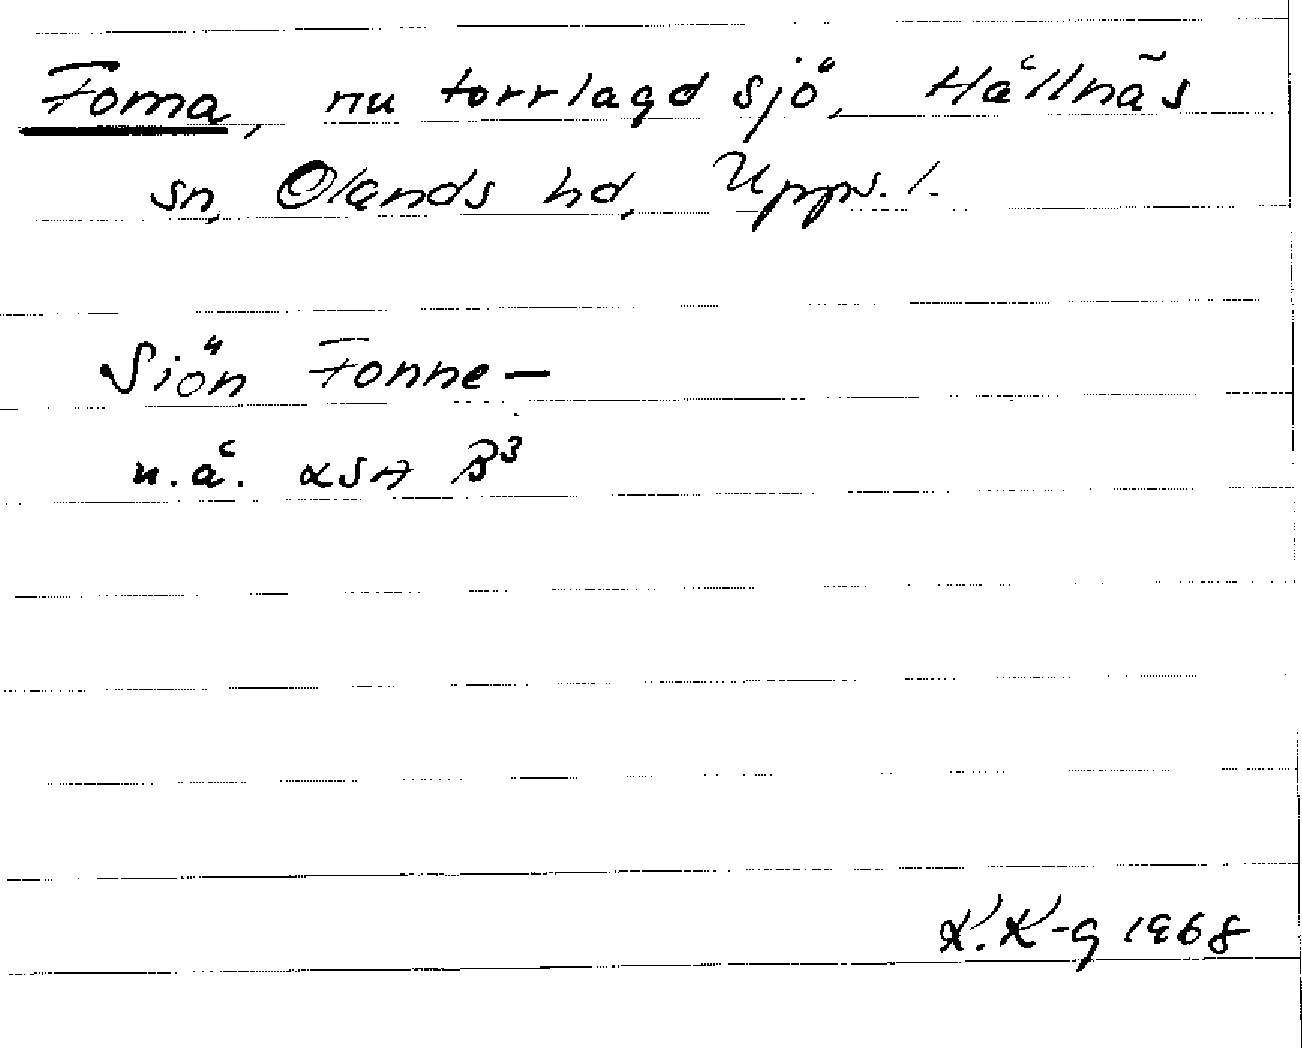 Foma, nu torrlagd sjö, Hållnäs
sn, Olands hd, Upps. l.
Siön Fonne-
n.å. LSA B³
K. K-g 1968